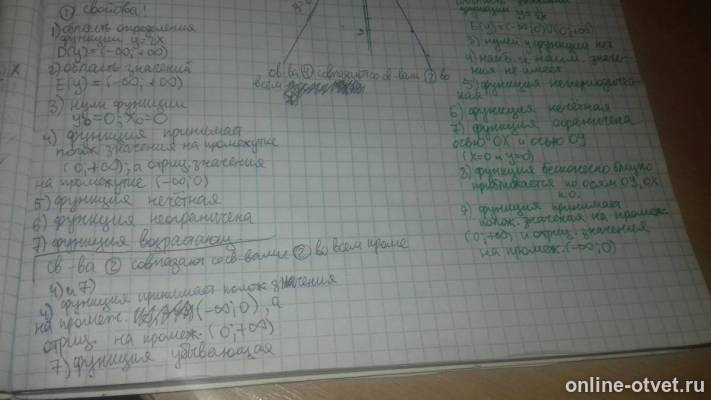 ① свойства!
1) область определения
функции y=2x
D(y)=(-∞; +∞)
2) область значений
E(y)=(-∞; +∞)
3) нули функции
y₀=0; x₀=0
4) функция принимает
полож. значения на промежутке
(0; +∞); а отриц. значения
на промежутке (-∞; 0)
5) функция нечётная
6) функция неограничена
7) функция возрастающ
св-ва ② совпадают со св-вами во всем кроме
4) и 7)
4) функция принимает полож. значения
на промеж. (-∞; 0), а
отриц. на промеж. (0; +∞)
7) функция убывающая
св-ва ④ совпадают со св-вам во
всем
функции
E(y)=(-∞;0)U(0;+∞)
3) нулей у функции нет
4) наиб. и наим. значе-
ния не имеет
5) функция непериодичес-
кая
6) функция нечётная
7) функция ограничена
осью OX и осью OY
(x=0 и y=0)
8) функция бесконечно близко
приближается по осям OY, OX
к 0.
9) функция принимает
полож. значения на промеж.
(0; +∞; и отриц. значения
на промеж. (-∞; 0)
online-otvet.ru